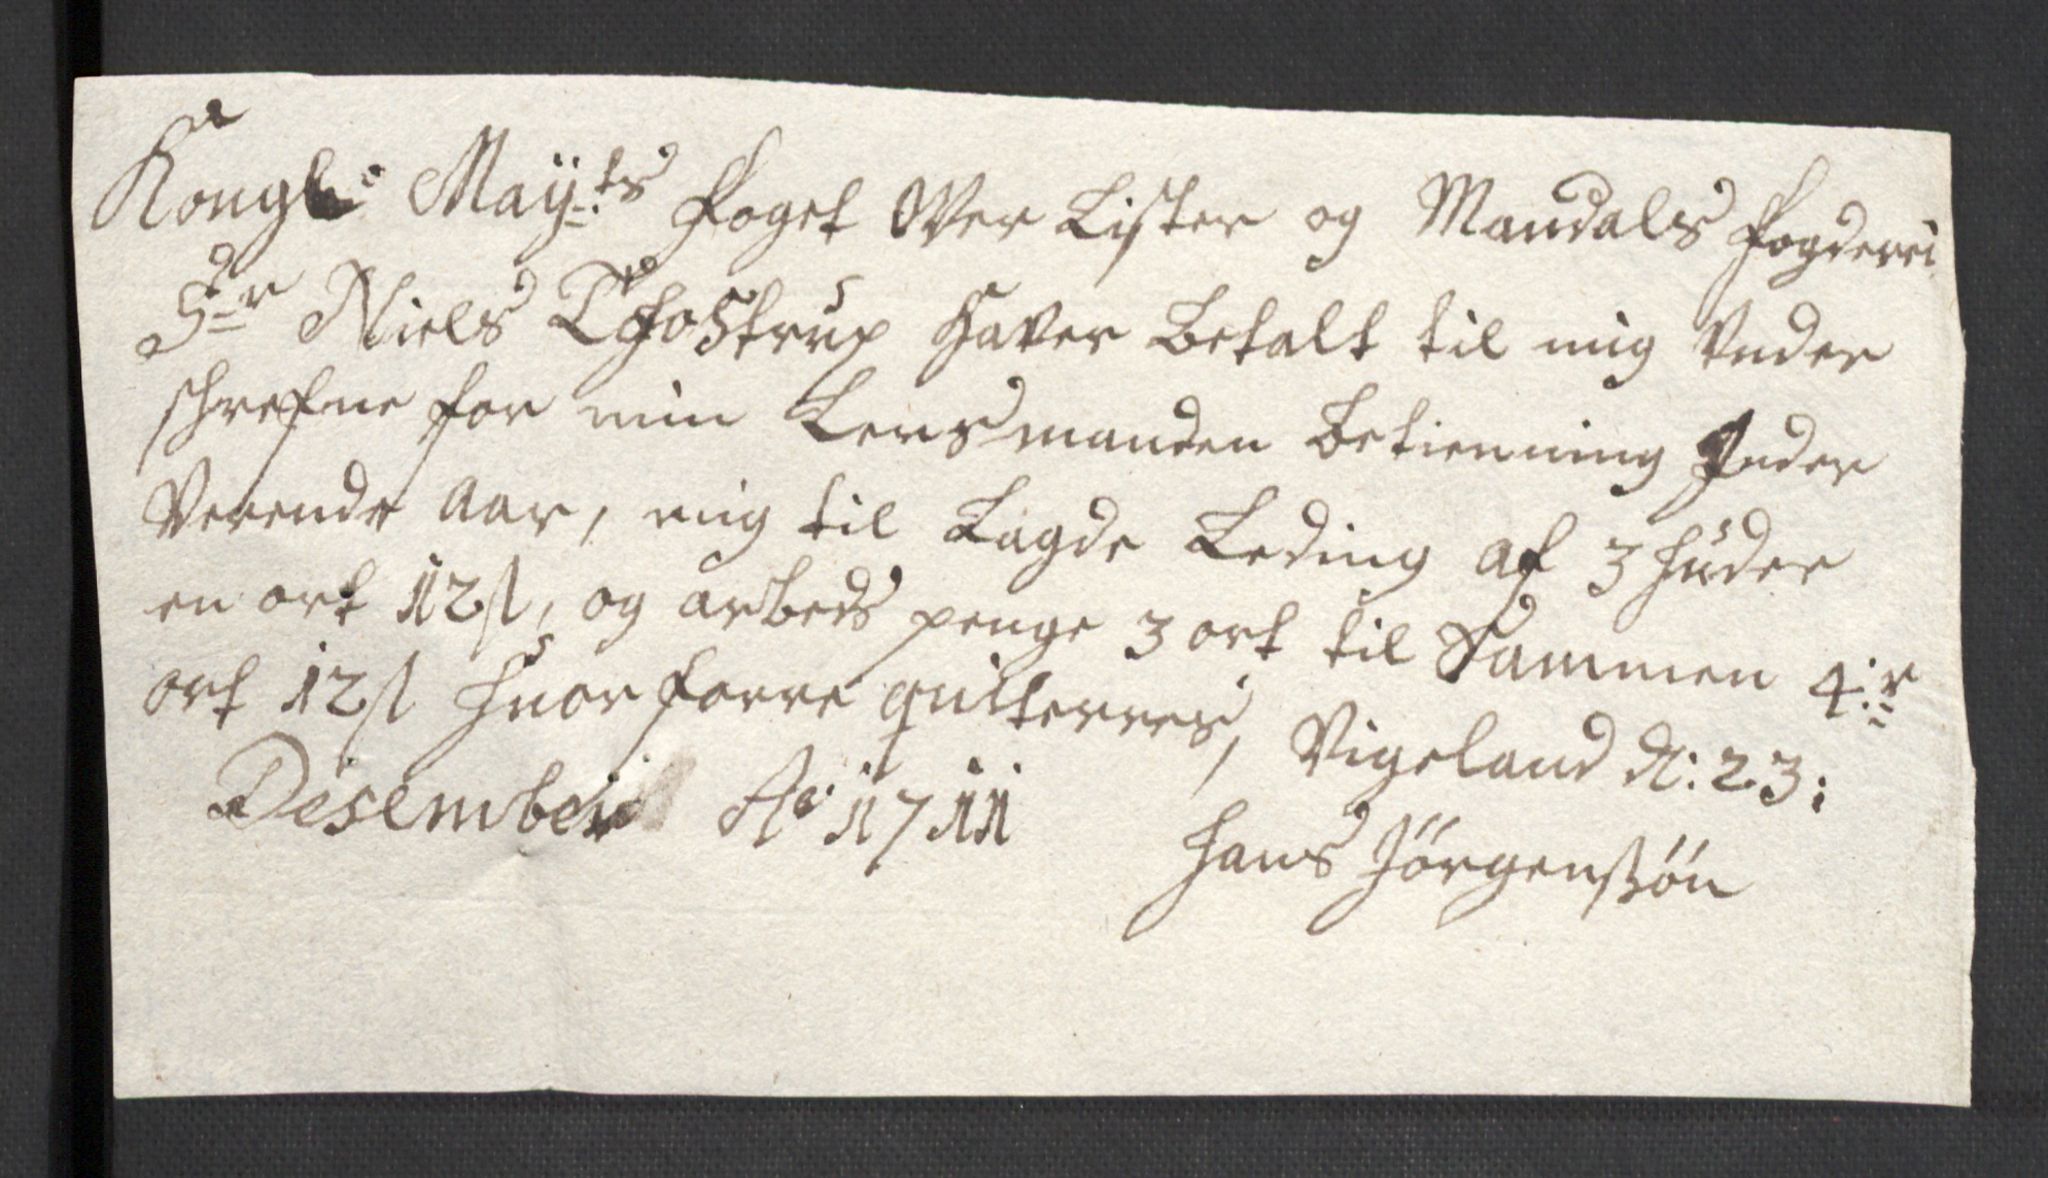 Kongl: Maÿ:ts Foget Over Lister og Mandals Fogderi
Sr Niels Thostrup haver betalt til mig Under
schrefne for min Lensmanden betienning Inde
Verende Aar, mig til Lagde Leding af 3 huder
en ort 12 s, og arbeds penge 3 ort til Sammen 4:r
ort 12 s huor forre quiterres, Vigeland d: 23:
Desember Ao 1711
Hans Jörgensßön